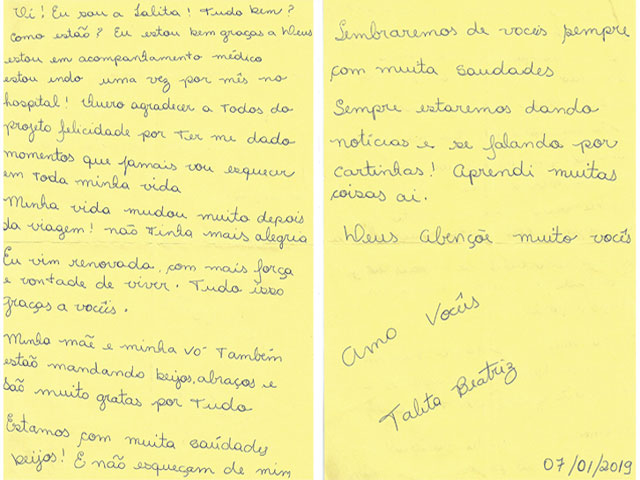 Oi! Eu sou a Talita! Tudo bem?
Como estão? Eu estou bem graças a Deus
estou em acompanhamento médico
estou indo uma vez por mês no
hospital! Quero agradecer a Todos do
projeto felicidade por Ter me dado
momentos que jamais vou esquecer
em Toda minha vida
Minha vida mudou muito depois
da viagem! não Tinha mais alegria
Eu vim renovada, com mais força
e vontade de viver. Tudo isso
graças a vocêis.
Minha mãe e minha vó Também
estão mandando beijos, abraços e
são muito gratas por Tudo
Estamos com muita saúdades
beijos! E não esqueçam de mim
Lembraremos de vocêis sempre
com muita saudades
Sempre estaremos dando
notícias e se falando por
cartinhas! Aprendi muitas
coisas ai.
Deus Abençõe muito vocês
Amo Vocêis
Talita Beatriz
07/01/2019